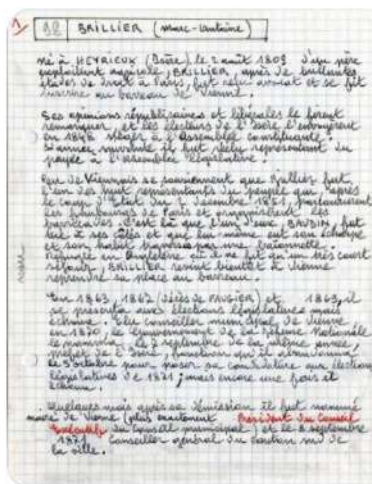 1
92 BRILLIER (Marc-Antoine)
né à HEYRIEUX (Isère), le 2 août 1809 d'un père
exploitant agricole, BRILLIER, après de brillantes
études de Droit à Paris, fut reçu avocat et se fit
inscrire au barreau de Vienne.
Ses opinions républicaines et libérales le firent
remarquer, et les électeurs de l'Isère l'envoyèrent
en 1848 siéger à l'Assemblée Constituante.
L'année suivante il fut réélu représentant du
peuple à l'assemblée législative.
Peu de Viennois se souviennent que Brillier fut
l'un des huit représentants du peuple qui, après
le coup d'état du 2 décembre 1851, parcoururent
les faubourgs de Paris et organisèrent les
barricades. C'est là que l'un d'eux, BAUDIN, fut
tué à ses côtés et que lui-même eut son écharpe
et son habit transpercés par une baïonnette.
Réfugié en Angleterre où il ne fit qu'un très court
séjour, BRILLIER revint bientôt à Vienne
reprendre sa place au barreau.
En 1863, 1867 (décès de FAUGIER) et 1869, il
se présenta aux élections législatives mais
échoua. Elu conseiller municipal de Vienne
en 1870, le Gouvernement de la Défense Nationale
le nomma, le 7 septembre de la même année,
préfet de l'Isère, fonctions qu'il abandonna
le 5 octobre pour poser sa candidature aux élections
législatives de 1871; mais encore une fois il
échoua.
Quelques mois après sa démission il fut nommé
maire de Vienne (plus exactement Président du Conseil
Exécutif du Conseil municipal) et le 8 septembre
1871 Conseiller général du Canton sud de
la ville.